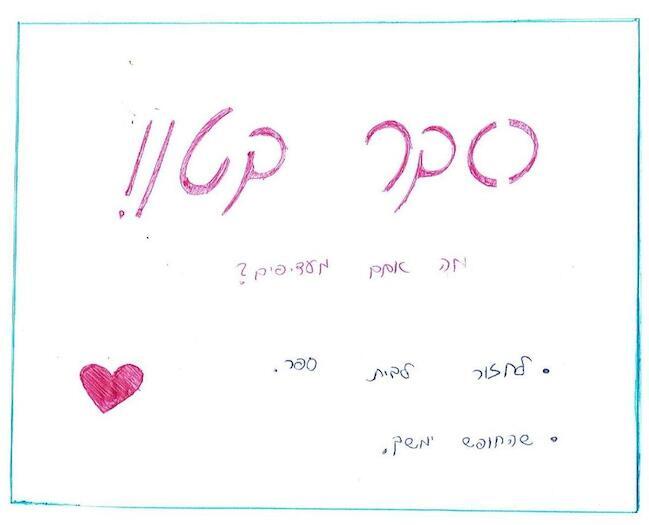 סקר קטן!
מה אתם מעדיפים?
• לחזור לבית ספר.
• שהחופש ימשך.